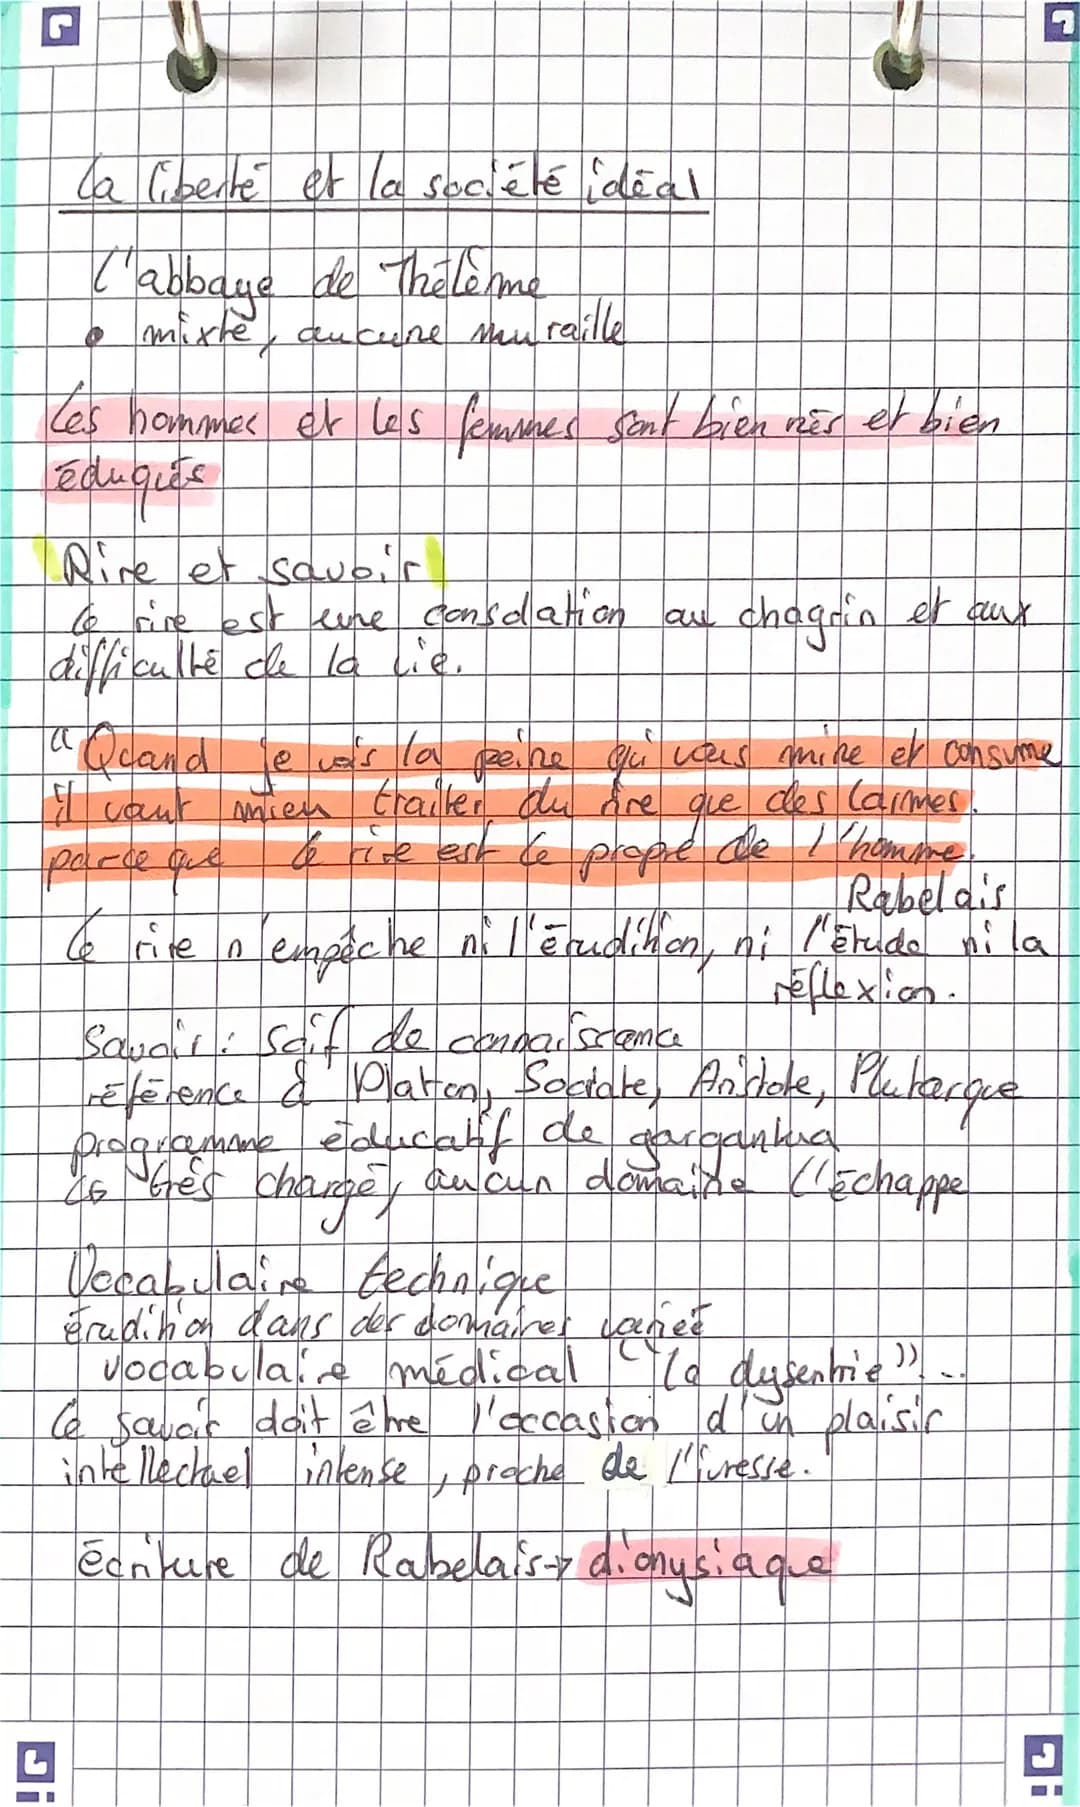 La liberté et la société idéal
L'abbaye de Thélème
• mixte, aucune muraille
Les hommes et les femmes sont bien nés et bien
éduqués
Rire et savoir
Le rire est une consolation au chagrin et aux
difficulté de la vie.
"Quand je vois la peine qui vous mine et consume
il vaut mieu traiter du rire que des larmes.
parce que le rire est le propre de l'homme.
Rabelais
Le rire n'empêche ni l'érudition, ni l'étude ni la
réflexion.
Savoir : soif de connaissance
référence à Platon, Socrate, Aristote, Plutarque
programme éducatif de gargantua
↳ très chargé, aucun domaine l'échappe
Vocabulaire technique
érudition dans des domaines variés
vocabulaire médical ("la dysentrie")...
Le savoir doit être l'occasion d'un plaisir
intellectuel intense, proche de l'ivresse.
écriture de Rabelais → dionysiaque